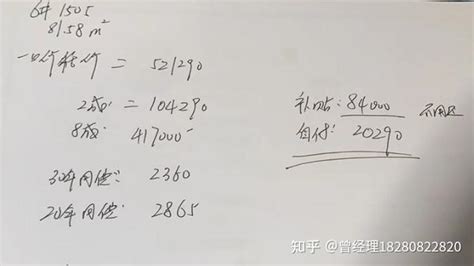 6# 1505
81.58 m²
一口价总价 = 521290
2成 = 104290
8成: 417000
30年月偿: 2360
20年月偿: 2865
补贴: 84000 不用还
自付: 20290
知乎 @曾经理18280822820